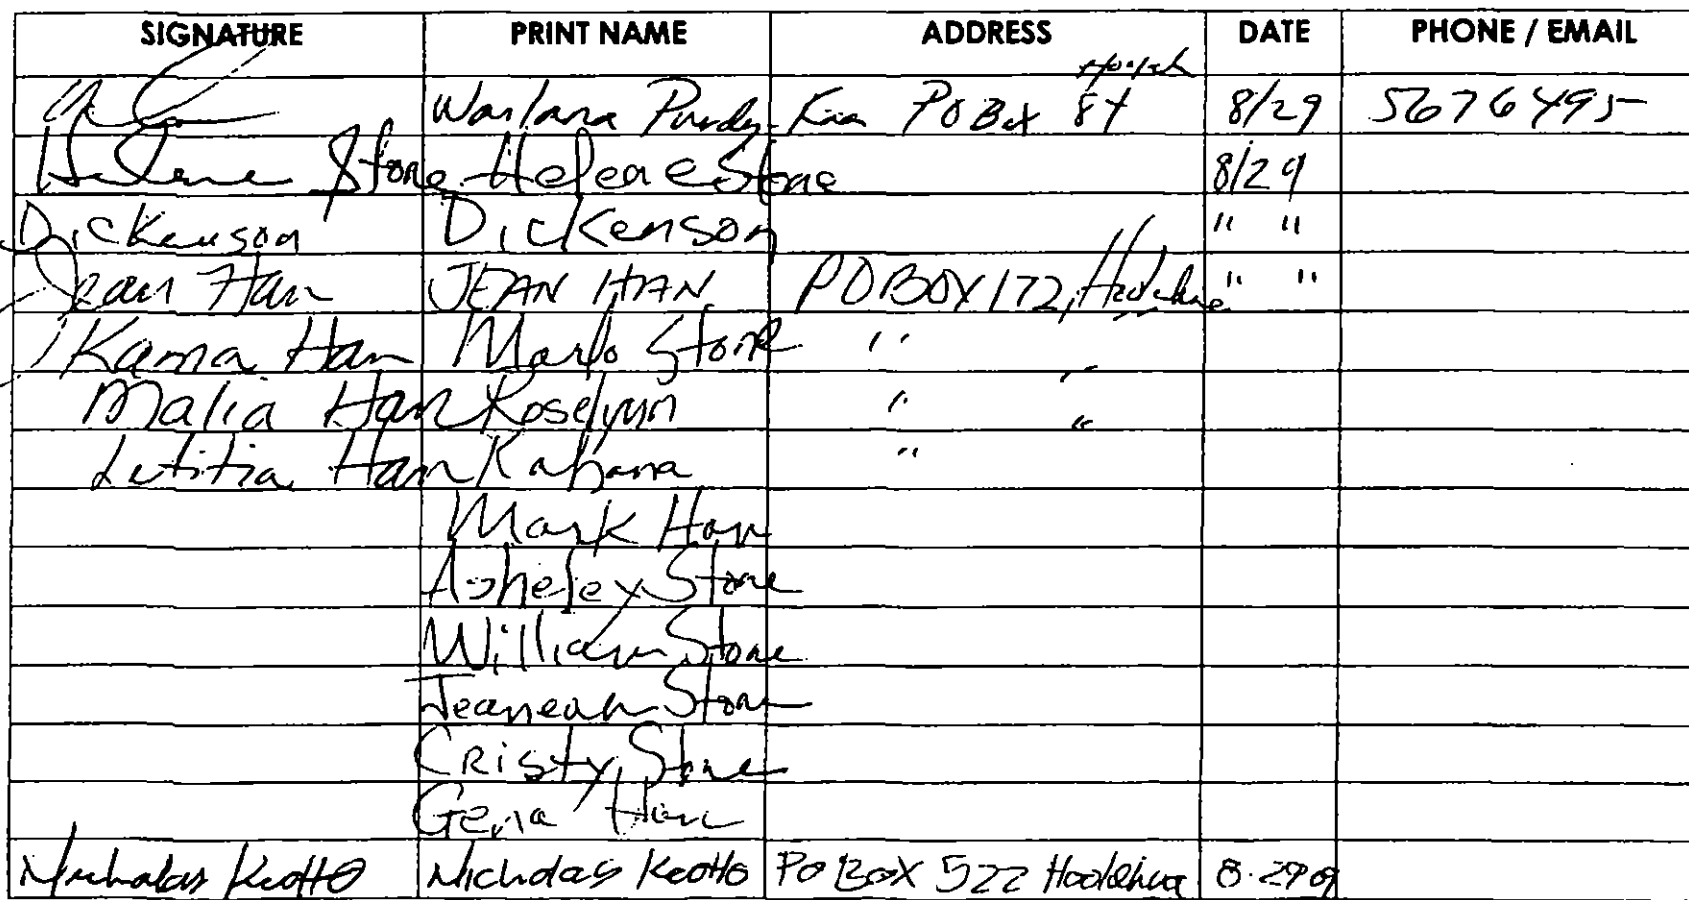 SIGNATURE PRINT NAME ADDRESS DATE PHONE / EMAIL
Warlana Purdy-Kaa PO Box 84 8/29 5676495
Helene Stone Helene Stone 8/29
Dickenson Dickenson " "
Jean Han JEAN HAN PO BOX 172, " "
Kama Han Marlo Stone " "
Malia Han Roselynn " "
Letitia Han Kahana "
Mark Han
Asheley Stone
William Stone
Jeaneah Stone
CRisty Stone
Gena Han
Nicholas Nicholas PO BOX 522 Hoolehua 8.29.09